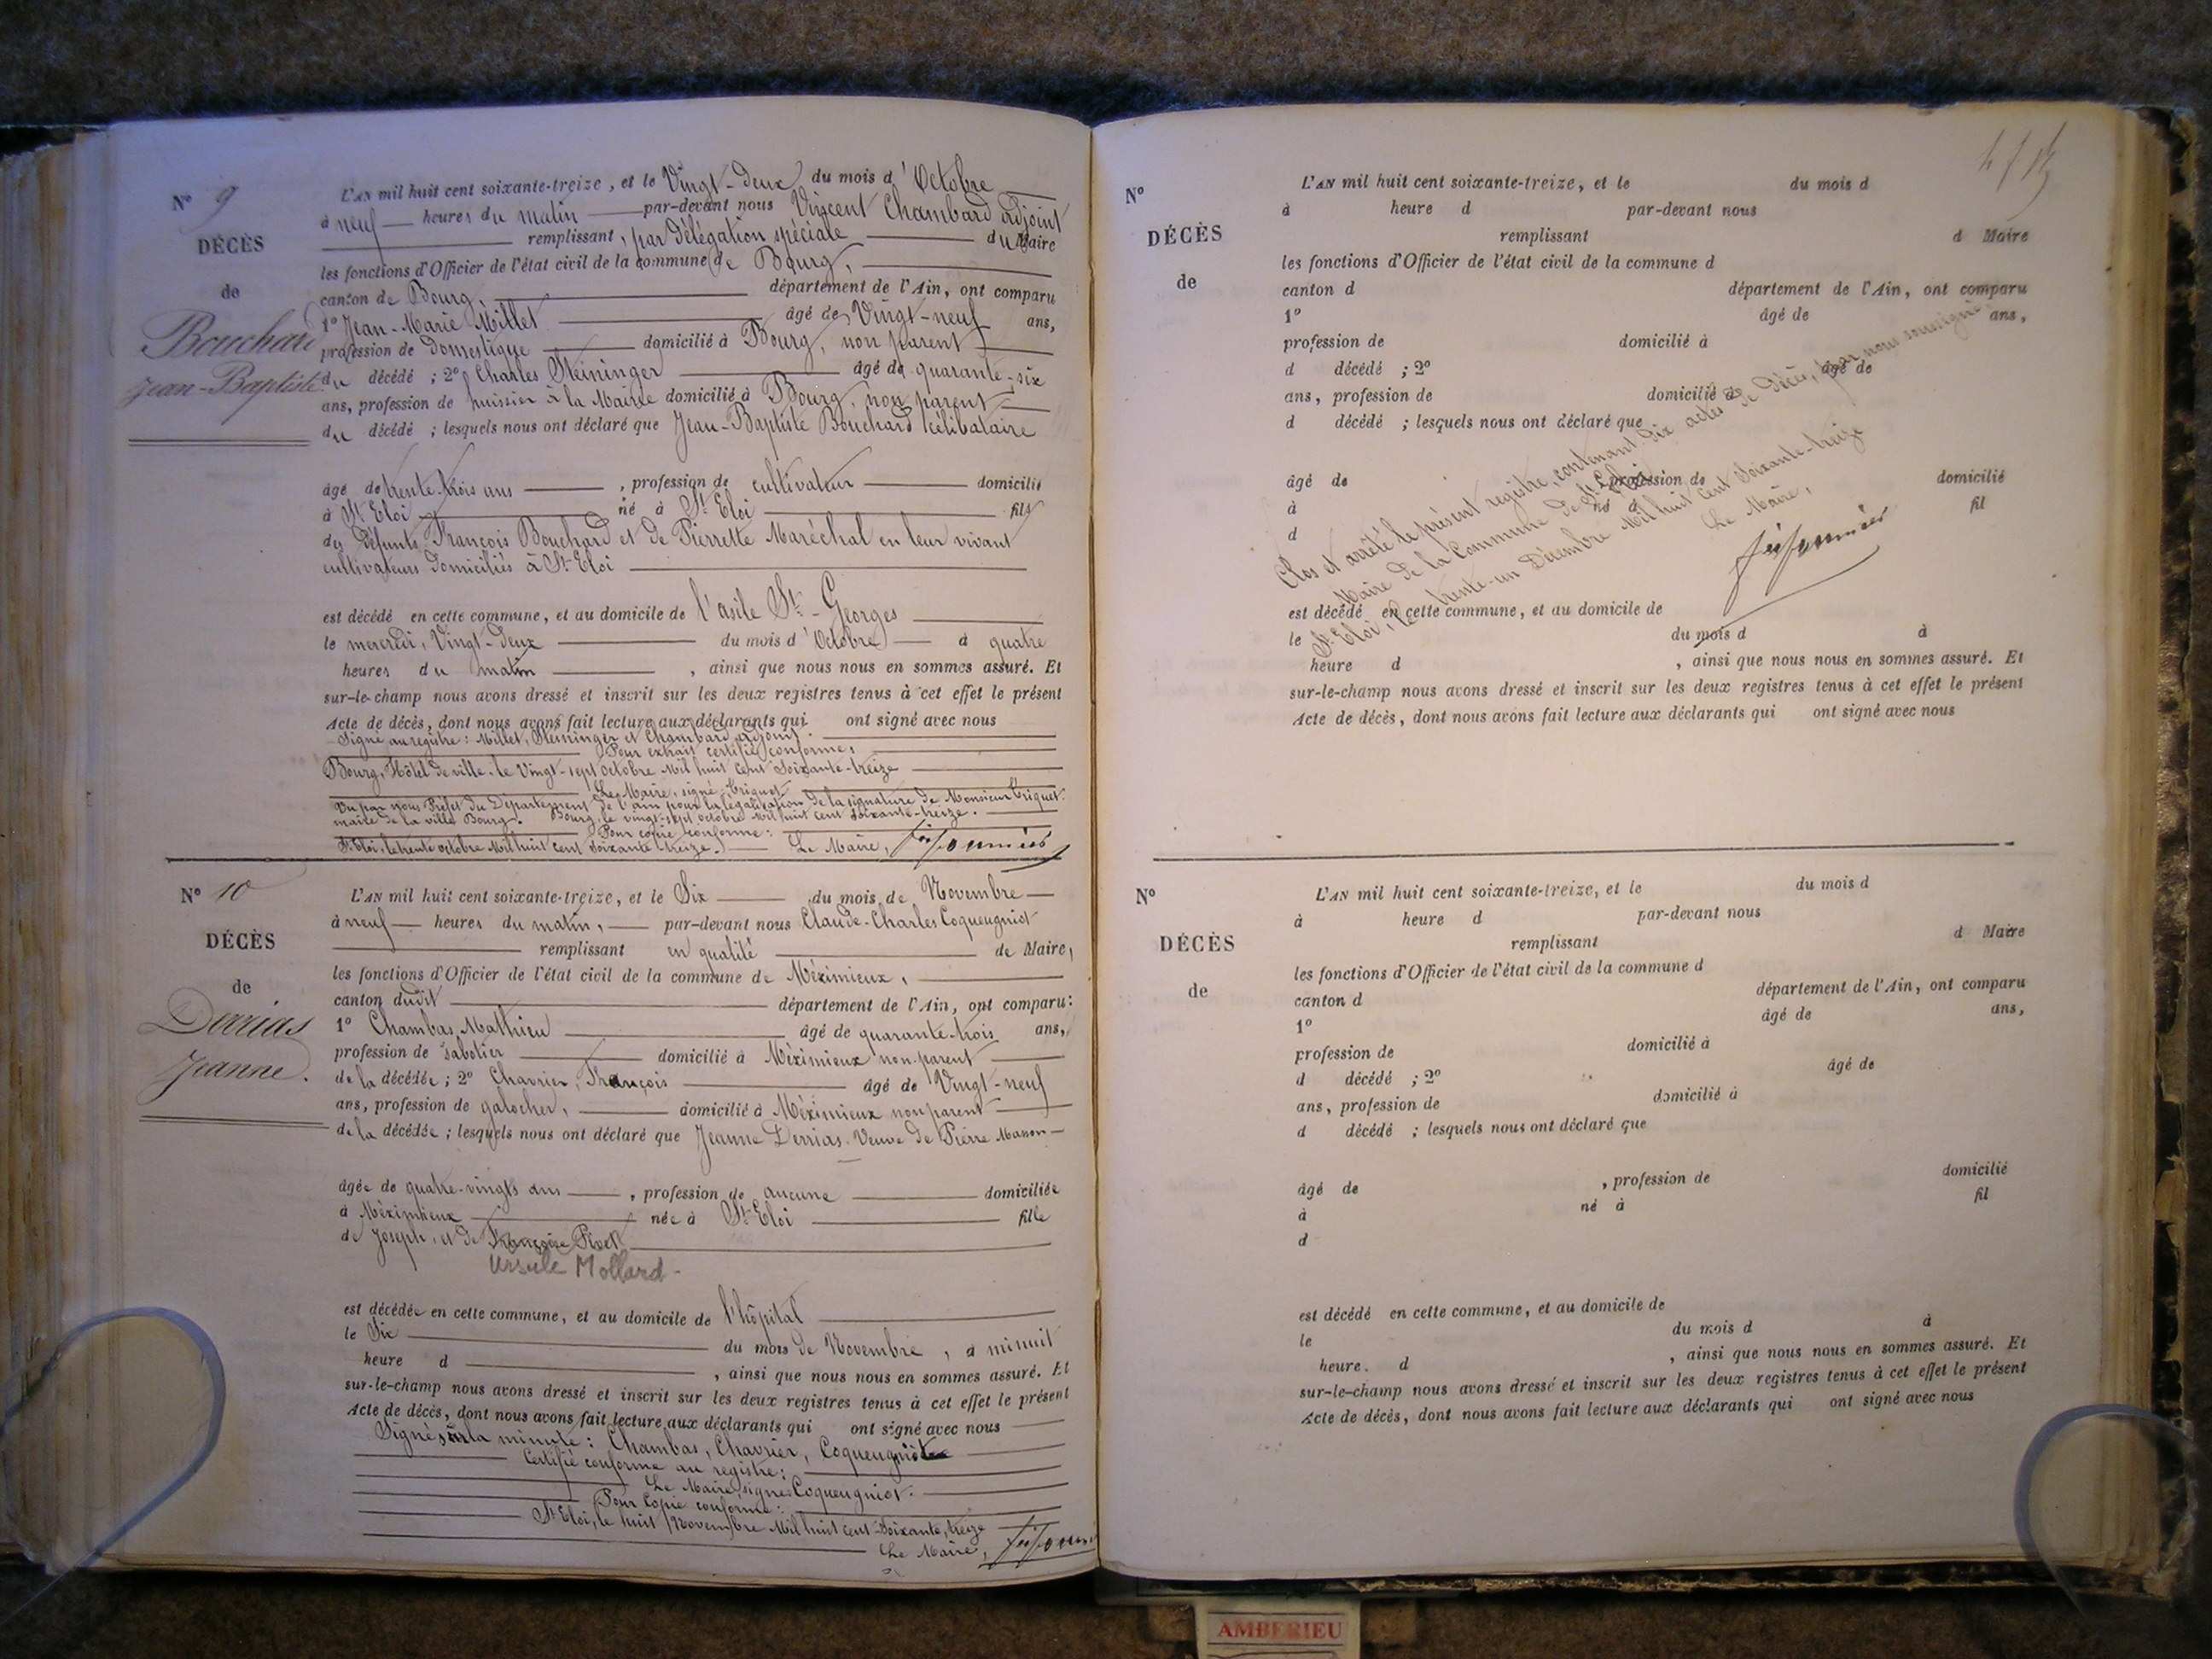 N° 9
DÉCÈS
de
Bouchard
Jean-Baptiste
L'AN mil huit cent soixante-treize, et le Vingt-deux du mois d'Octobre
à neuf heures du matin par-devant nous Vincent Chambard adjoint
remplissant, par délégation spéciale du Maire
les fonctions d'Officier de l'état civil de la commune de Bourg,
canton de Bourg, département de l'Ain, ont comparu
1° Jean-Marie Millet âgé de Vingt-neuf ans,
profession de domestique domicilié à Bourg, non parent
du décédé ; 2° Charles Steininger âgé de quarante-six
ans, profession de huissier à la Mairie domicilié à Bourg, non parent
du décédé ; lesquels nous ont déclaré que Jean-Baptiste Bouchard célibataire
âgé de trente-trois ans, profession de cultivateur domicilié
à St Eloi né à St Eloi fils
des défunts François Bouchard et de Pierrette Maréchal en leur vivant
cultivateurs domiciliés à St Eloi
est décédé en cette commune, et au domicile de l'asile St-Georges
le mercredi, Vingt-deux du mois d'Octobre à quatre
heures du matin, ainsi que nous nous en sommes assuré. Et
sur-le-champ nous avons dressé et inscrit sur les deux registres tenus à cet effet le présent
Acte de décès, dont nous avons fait lecture aux déclarants qui ont signé avec nous
Signé au registre : Millet, Steininger et Chambard, adjoint.
Pour extrait certifié conforme :
Bourg, Hôtel de ville, le Vingt-sept octobre Mil huit cent Soixante-treize
Le Maire, signé
Vu par nous Préfet du Département de l'ain pour la légalisation de la signature de Monsieur
maire de la ville Bourg. Bourg, le vingt-sept octobre mil huit cent soixante-treize.
Pour copie conforme :
St Eloi, le trente octobre Mil huit cent soixante treize. Le Maire,
N° 10
DÉCÈS
de
Derrias
Jeanne.
L'AN mil huit cent soixante-treize, et le Six du mois de Novembre
à neuf heures du matin, par-devant nous Claude-Charles Coqueugniot
remplissant en qualité de Maire,
les fonctions d'Officier de l'état civil de la commune de Méximieux,
canton dudit département de l'Ain, ont comparu :
1° Chambas Mathieu âgé de quarante-trois ans,
profession de sabotier domicilié à Méximieux non parent
de la décédée ; 2° Chavrier, François âgé de Vingt-neuf
ans, profession de galocher, domicilié à Méximieux non parent
de la décédée ; lesquels nous ont déclaré que Jeanne Derrias Veuve de Pierre Masson
âgée de quatre-vingts ans, profession de aucune domiciliée
à Méximieux née à St-Eloi fille
de Joseph, et de Françoise
Ursule Mollard
est décédée en cette commune, et au domicile de l'hôpital
le Six du mois de Novembre, à minuit
heure d , ainsi que nous nous en sommes assuré. Et
sur-le-champ nous avons dressé et inscrit sur les deux registres tenus à cet effet le présent
Acte de décès, dont nous avons fait lecture aux déclarants qui ont signé avec nous
Signé sur la minute : Chambas, Chavrier, Coqueugniot
Certifié conforme au registre :
Le Maire, signé Coqueugniot.
Pour Copie conforme :
St Eloi, le huit Novembre Mil huit cent Soixante, treize
Le Maire,
N°
DÉCÈS
de
L'AN mil huit cent soixante-treize, et le du mois d
à heure d par-devant nous
remplissant d Maire
les fonctions d'Officier de l'état civil de la commune d
canton d département de l'Ain, ont comparu
1° âgé de ans,
profession de domicilié à
d décédé ; 2° âgé de
ans, profession de domicilié à
d décédé ; lesquels nous ont déclaré que
âgé de profession de domicilié
à né à fil
d
Clos et arrêté le présent registre, contenant dix actes de décès, par nous soussigné
Maire de la Commune de St Eloi
St Eloi, le trente-un Décembre Mil huit cent Soixante-treize
Le Maire,
est décédé en cette commune, et au domicile de
le du mois d à
heure d , ainsi que nous nous en sommes assuré. Et
sur-le-champ nous avons dressé et inscrit sur les deux registres tenus à cet effet le présent
Acte de décès, dont nous avons fait lecture aux déclarants qui ont signé avec nous
N°
DÉCÈS
de
L'AN mil huit cent soixante-treize, et le du mois d
à heure d par-devant nous
remplissant d Maire
les fonctions d'Officier de l'état civil de la commune d
canton d département de l'Ain, ont comparu
1° âgé de ans,
profession de domicilié à
d décédé ; 2° âgé de
ans, profession de domicilié à
d décédé ; lesquels nous ont déclaré que
âgé de , profession de domicilié
à né à fil
d
est décédé en cette commune, et au domicile de
le du mois d à
heure. d , ainsi que nous nous en sommes assuré. Et
sur-le-champ nous avons dressé et inscrit sur les deux registres tenus à cet effet le présent
Acte de décès, dont nous avons fait lecture aux déclarants qui ont signé avec nous
AMBERIEU